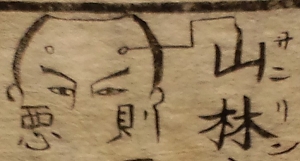 山林
サンリン
悪
則